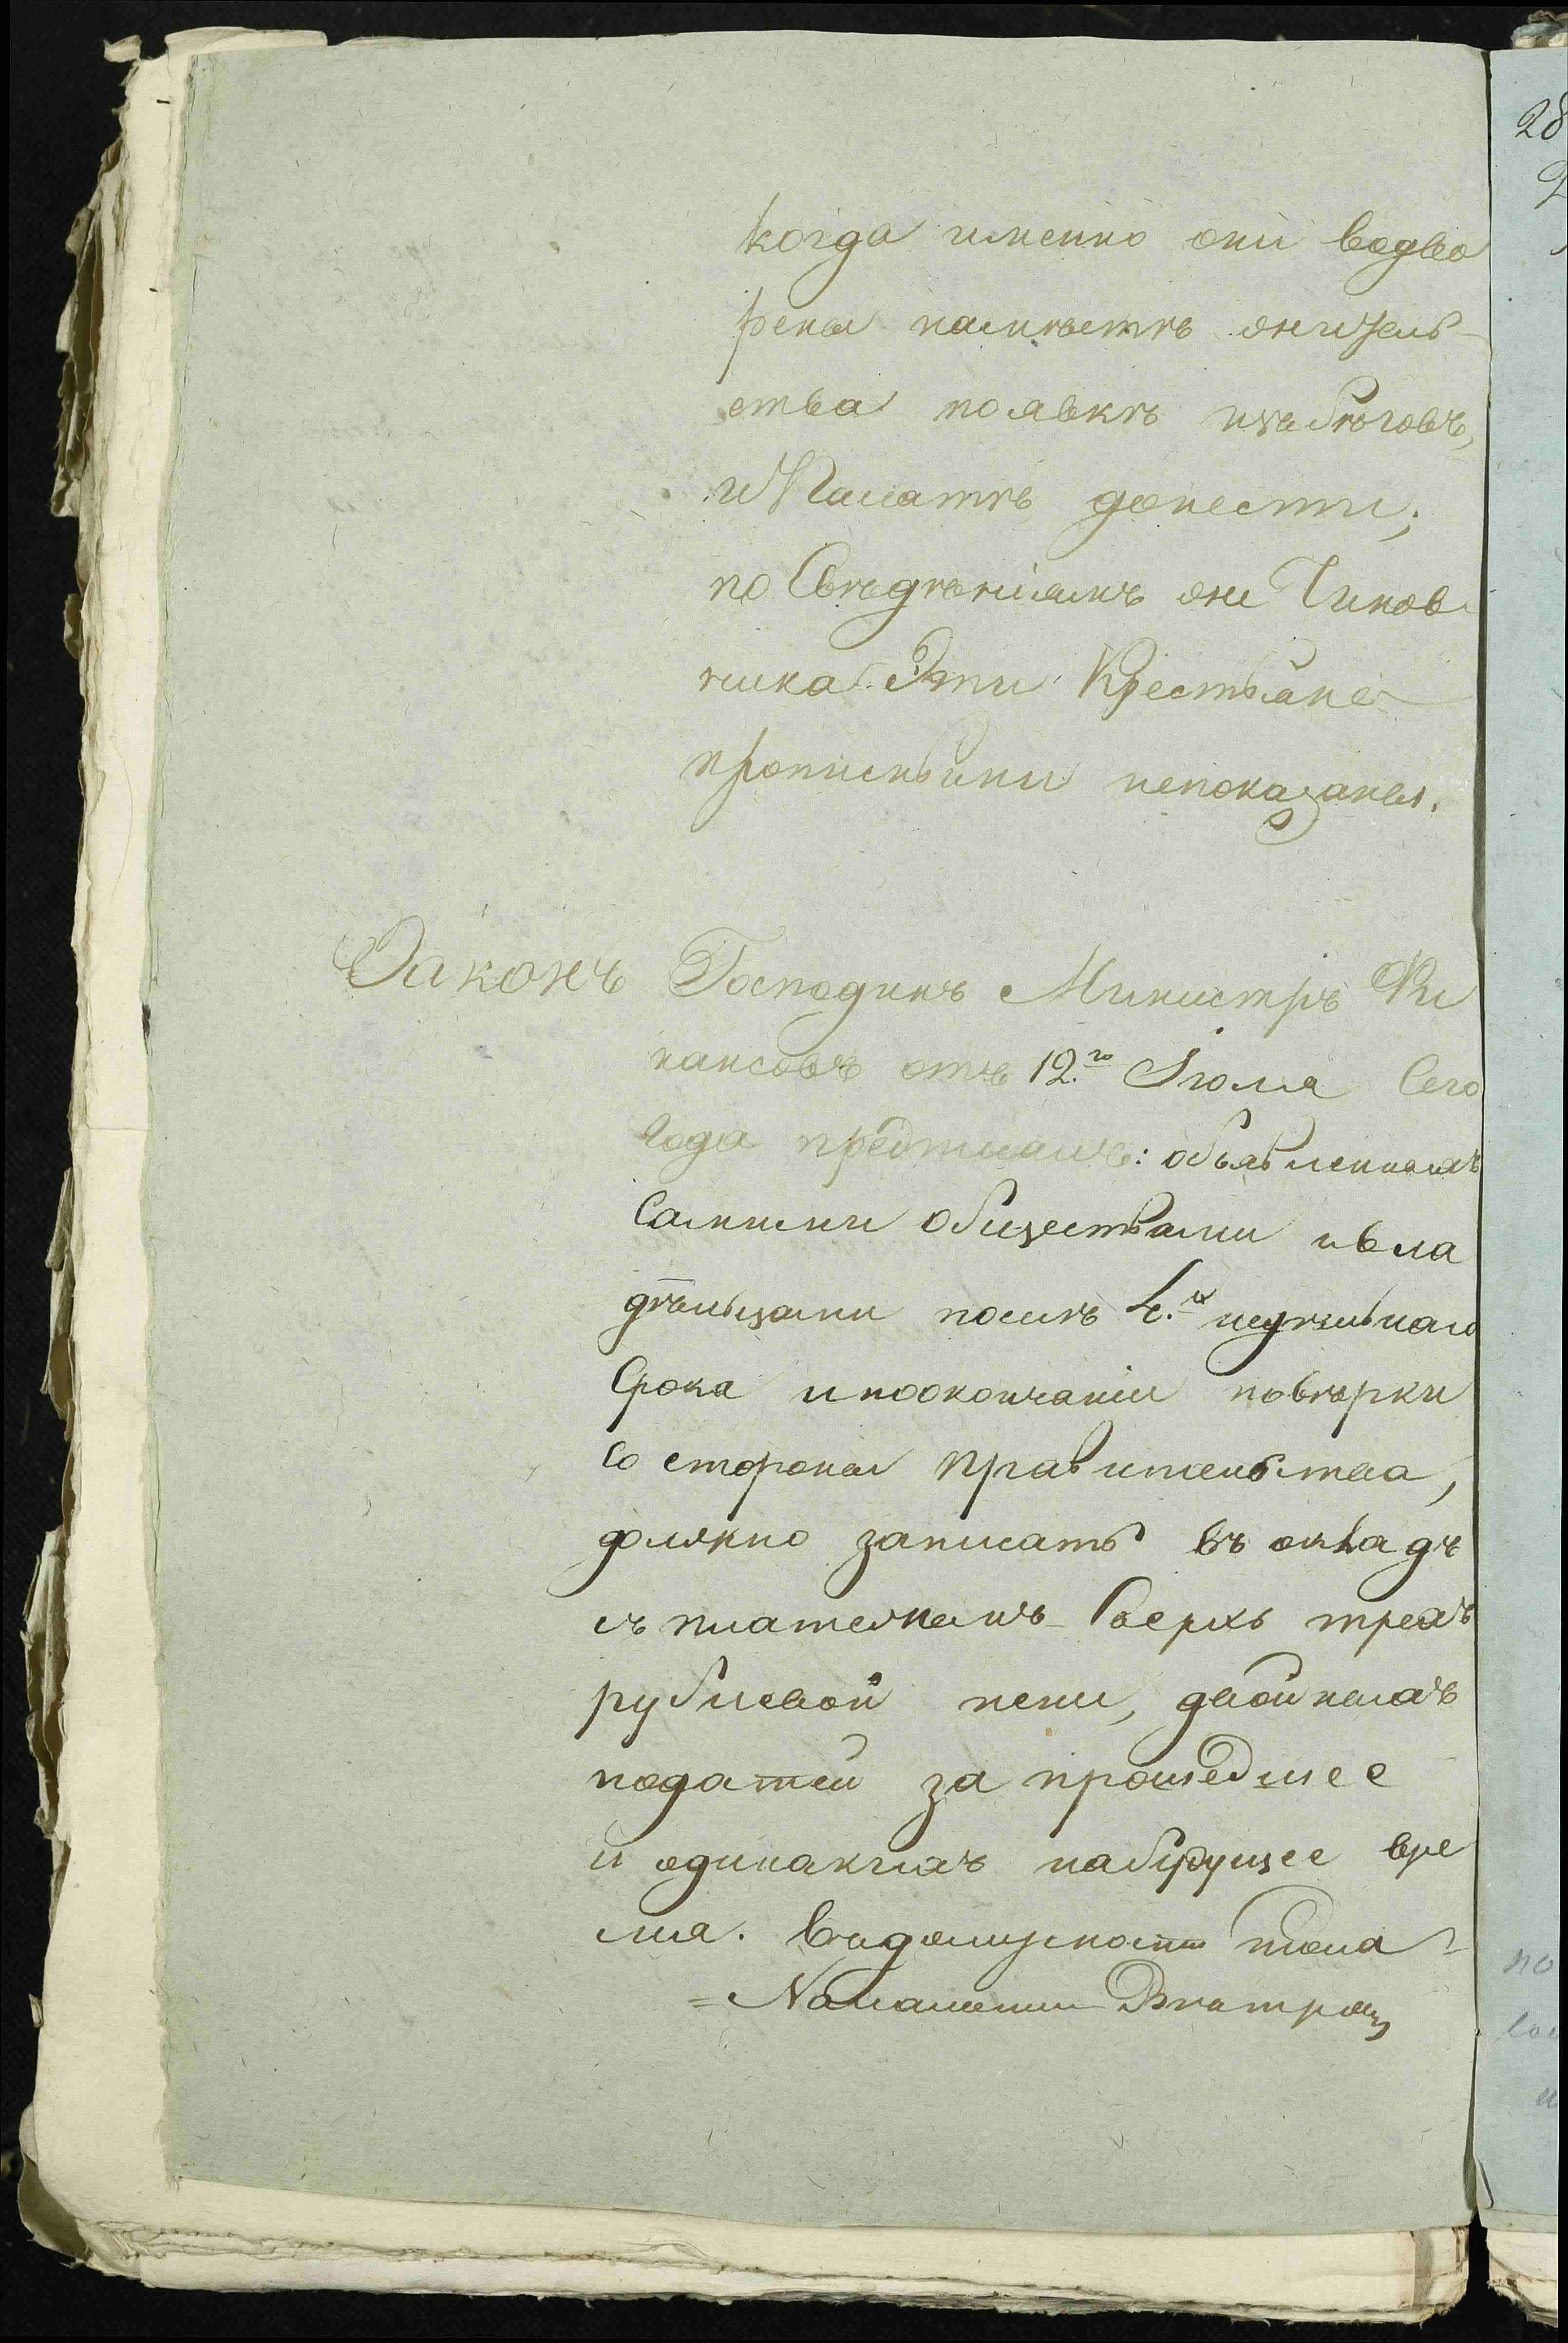 когда именно они водво
рены наместѣ жижель-
ства появкѣ избѣговъ,
иПалатѣ донести;
по Свѣдѣніямъ же Чинов
ника Эти Крестьяне
прописными непоказаны.
Законъ Господинъ Министръ Фи
нансовъ отъ 12.го Іюля Сего
Года предписалъ: объявленныхъ
Самими Обществами ивла
дѣльцами послѣ 4.х недѣльнаго
Срока ипоокончаніи повѣрки
Со стороны правительства,
должно записать въ окладъ
съ платежемъ Сверхъ трехъ
рублевой пени, двойныхъ
податей за прошедшее
и одинакихъ набудущее вре
мя.